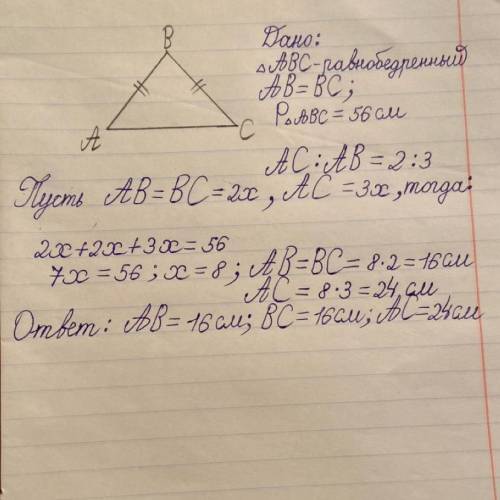 B
A
C
Дано:
△ABC-равнобедренный
AB=BC;
P△ABC=56см
AC:AB=2:3
Пусть AB=BC=2x, AC=3x, тогда:
2x+2x+3x=56
7x=56; x=8; AB=BC=8·2=16см
AC=8·3=24 см
Ответ: AB=16см; BC=16см; AC=24см